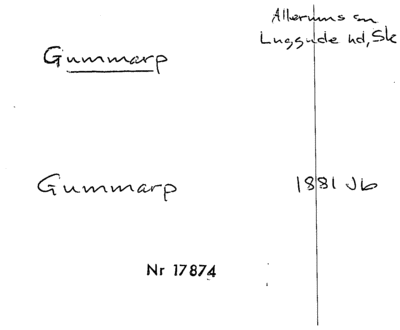 Allerums sn
Gummarp Luggude hd, Sk
Gummarp 1881 Jb
Nr 17874